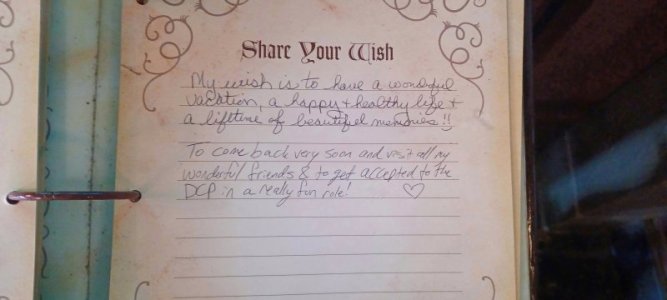 Share Your Wish
My wish is to have a wonderful
vacation, a happy + healthy life +
a lifetime of beautiful memories!!
To come back very soon and visit all my
wonderful friends & to get accepted to the
DCP in a really fun role! ♡